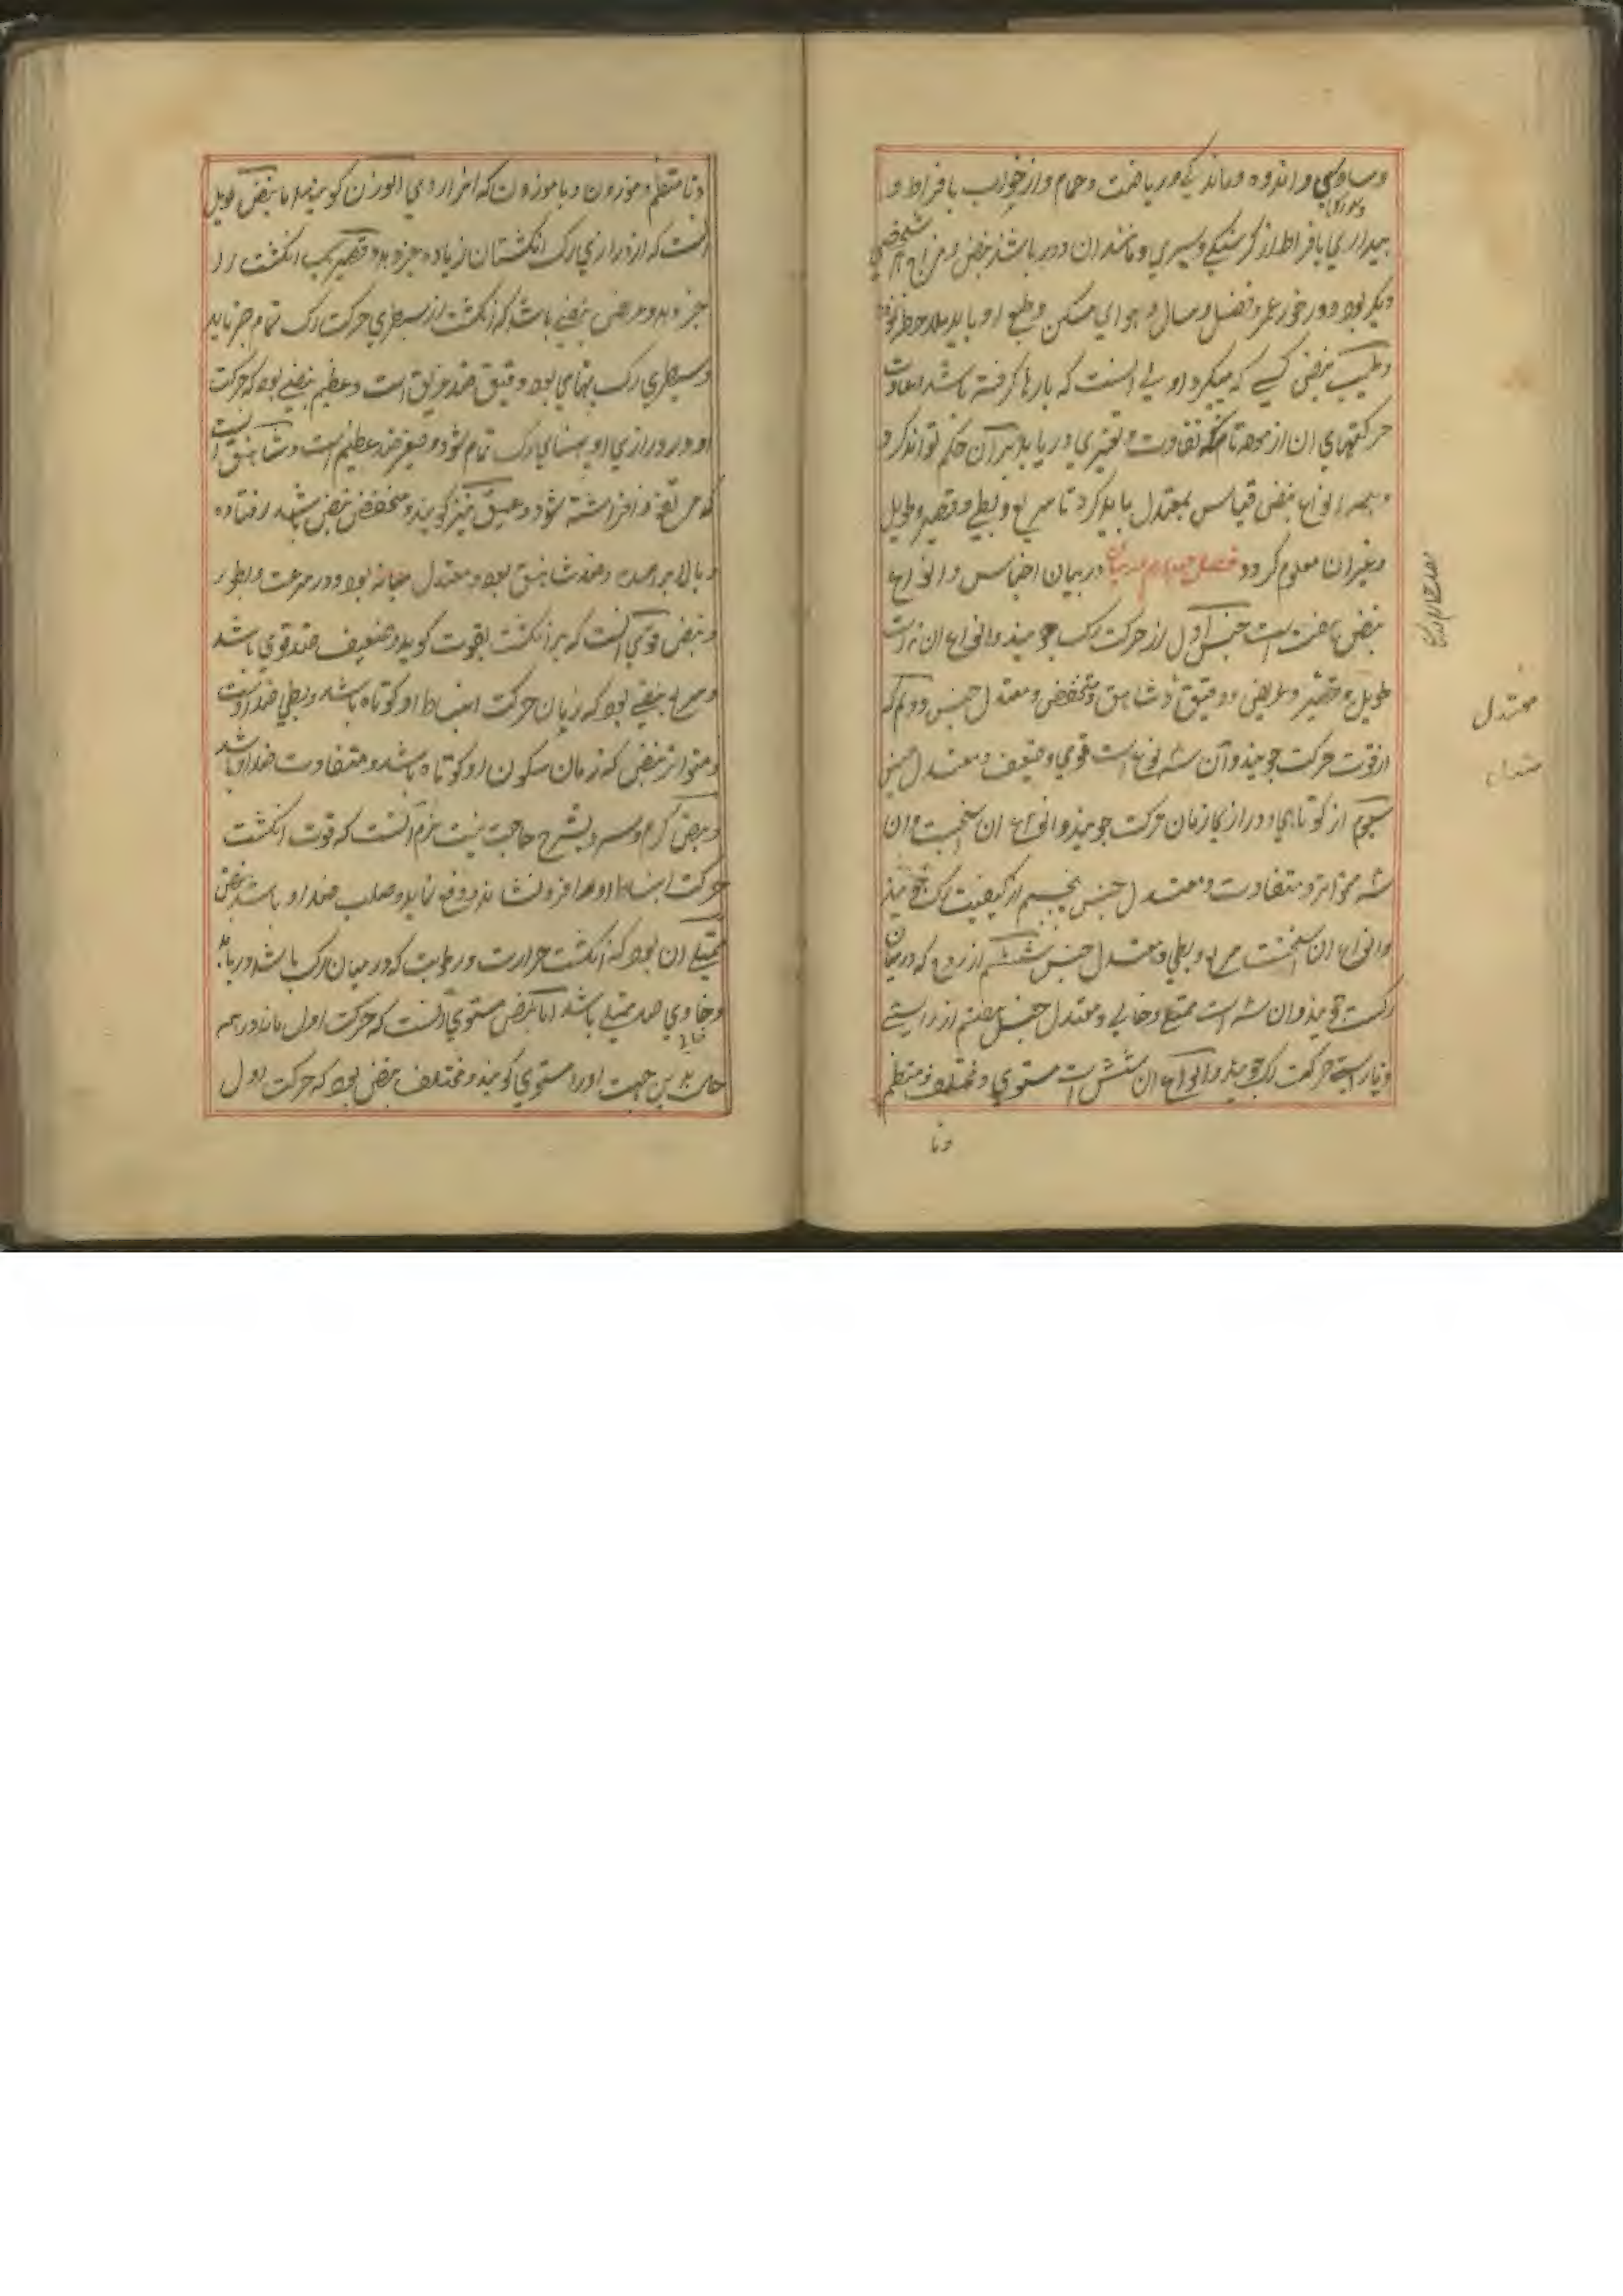 و اندوه و ماندگی و ریاضت و حمام و از خواب بافراط و
بیداری بافراط از گرسنگی و سیری و مانند ان دور باشد نبض و مزاج هر شخصی
دیگر بود و در خور عمر و فصل و سال و هوای مسکن و طبع او باید ملاحظه
و طبیب نبض کسی که میگیرد اولی انست که بارها گرفته باشد
حرکتهای ان ازموده تا تفاوت و تغیری دریابد بران حکم تواند کرد
و همه انواع نبض قیاس بمعتدل باید کرد تا سریع و بطی و قصیر و طویل
و غیر ان معلوم گردد فصل چهارم در بیان اجناس و انواع
نبض جنس اول از حرکت رگ جویند و انواع ان
طویل و قصیر و عریض و دقیق و شاهق و منخفض و معتدل جنس دویم که
از قوت حرکت جویند و آن سه نوع است قوی و ضعیف و معتدل جنس
سیوم از کوتاهی و درازی زمان حرکت جویند و انواع ان
سه متواتر و متفاوت و معتدل جنس پنجم از کیفیت رگ جویند
و انواع ان سریع و بطی و معتدل جنس ششم از که در میان
رگست جویند و ان سه است ممتلی و خالی و معتدل جنس هفتم از راستی
و ناراستی حرکت رگ جویند و انواع ان شش است مستوی و مختلف و منتظم
ونا
معتدل
ونا منتظم و موزون و ناموزون که انرا ردی الوزن گویند اما نبض طویل
انست که از درازی رگ انگشتان زیاده خبر دهد و قصیر یک انگشت را
خبر دهد و عریض نبضی باشد که انگشت از سطبری حرکت رگ تمام خبر یابد
و سطبری رگ پهنای بود و دقیق ضد عریض است و عظیم نبضی بود که حرکت
او در درازی و پهنای رگ تمام بود و صغیر ضد عظیم است و شاهق انست
که مرتفع و افراشته بود و عمیق نیز گویند و منخفض نبض باشد افتاده
و بالا برامده و ضد شاهق بود و معتدل میانه بود و در سرعت و ابطا
و نبض قوی آنست که بر انگشت بقوت کوبد و ضعیف ضد قوی باشد
و سریع نبضی بود که زمان حرکت انبساط او کوتاه باشد و بطی ضد اوست
و متواتر نبض که زمان سکون او کوتاه باشد و متفاوت ضد او باشد
و نبض گرم و سرد بشرح حاجت نیست نرم آنست که قوت انگشت
حرکت انبساط او را فرو نشاند و دفع نماید و صلب ضد او باشد نبض
ممتلی ان بود که انگشت حرارت و رطوبت که در میان رگ باشد دریابد
و خاوی ضد ممتلی باشد اما نبض مستوی آنست که حرکت اول ماند در همه
حال بدین جهت او را مستوی گویند و مختلف نبض بود که حرکت اول